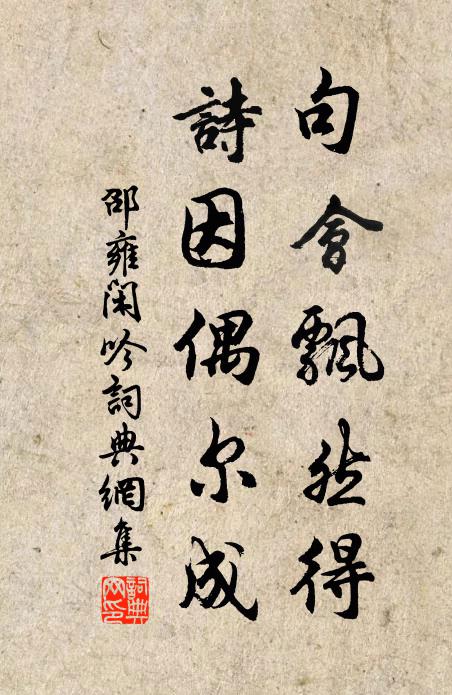 句會飄然得
詩因偶尔成
邵雍閑吟詞典網集
詞典網印